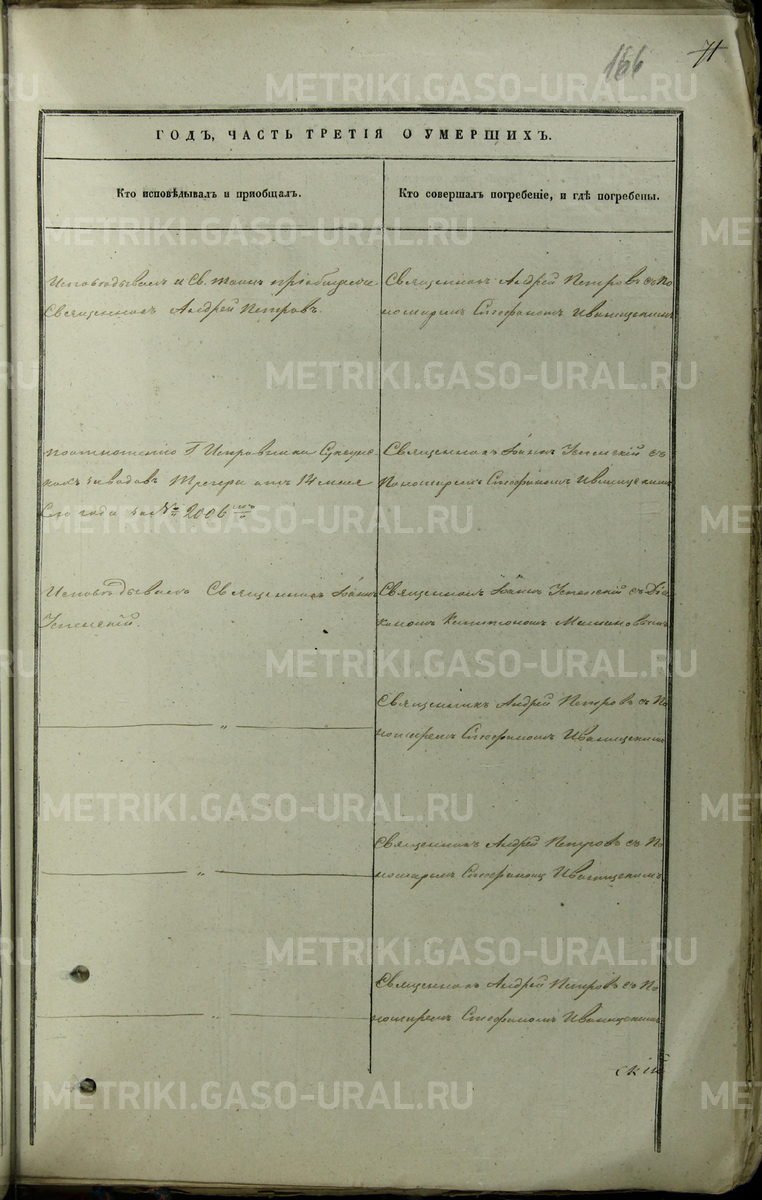 166 71
ГОДЪ, ЧАСТЬ ТРЕТІЯ О УМЕРШИХЪ.
Кто исповѣдывалъ и пріобщалъ.
Кто совершалъ погребеніе, и гдѣ погребены.
Исповѣдывалъ и Св. Таинъ пріобщалъ
Священникъ Андрей Петровъ.
Священникъ Андрей Петровъ съ По
номаремъ Стефаномъ Иваницкимъ
По отношенію Г. Исправника
заводовъ отъ 14 мая
Сего года за № 2006мъ
Священникъ Іоаннъ Успенскій съ
Пономаремъ Стефаномъ Иваницкимъ
Исповѣдывалъ Священникъ Іоаннъ
Успенскій.
Священникъ Іоаннъ Успенскій съ Діа
кономъ
Священникъ Андрей Петровъ съ По
номаремъ Стефаномъ Иваницкимъ
Священникъ Андрей Петровъ съ По
номаремъ Стефаномъ Иваницкимъ
Священникъ Андрей Петровъ съ По
номаремъ Стефаномъ Иваницкимъ
скій
METRIKI.GASO-URAL.RU